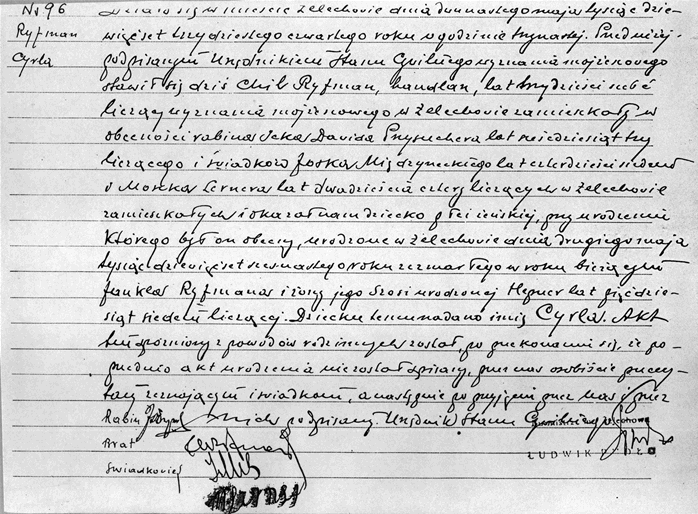 Nr 96
Ryfman
Cyrla
Działo się w mieście Żelechowie dnia dwunastego maja tysiąc dzie-
więćset trzydziestego czwartego roku o godzinie trzynastej. Przed niżej
podpisanym Urzędnikiem Stanu Cywilnego wyznania mojżeszowego
stawił się dziś Chil Ryfman, handlarz, lat trzydzieści
liczący wyznania mojżeszowego w Żelechowie zamieszkały w
obecności rabina Icka Dawida lat sześćdziesiąt trzy
liczącego i świadków Joska Międzyrzeckiego lat czterdzieści siedem
i Moszka Lernera lat dwadzieścia cztery liczących w Żelechowie
zamieszkałych i okazał nam dziecko płci żeńskiej, przy urodzeniu
którego był on obecny, urodzone w Żelechowie dnia drugiego maja
tysiąc dziewięćset roku z zmarłego w roku bieżącym
Jankla Ryfmana i żony jego urodzonej lat pięćdzie-
siąt siedem liczącej. Dziecku temu nadano imię Cyrla. Akt
ten spóźniony z powodów rodzinnych został, po przekonaniu się, że po-
przednio akt urodzenia nie został spisany, przez nas osobiście przeczy-
tany zeznającym i świadkom, a następnie po przyjęciu przez Nas i przez
Rabin podpisany. Urzędnik Stanu Cywilnego
Brat
Świadkowie
LUDWIK